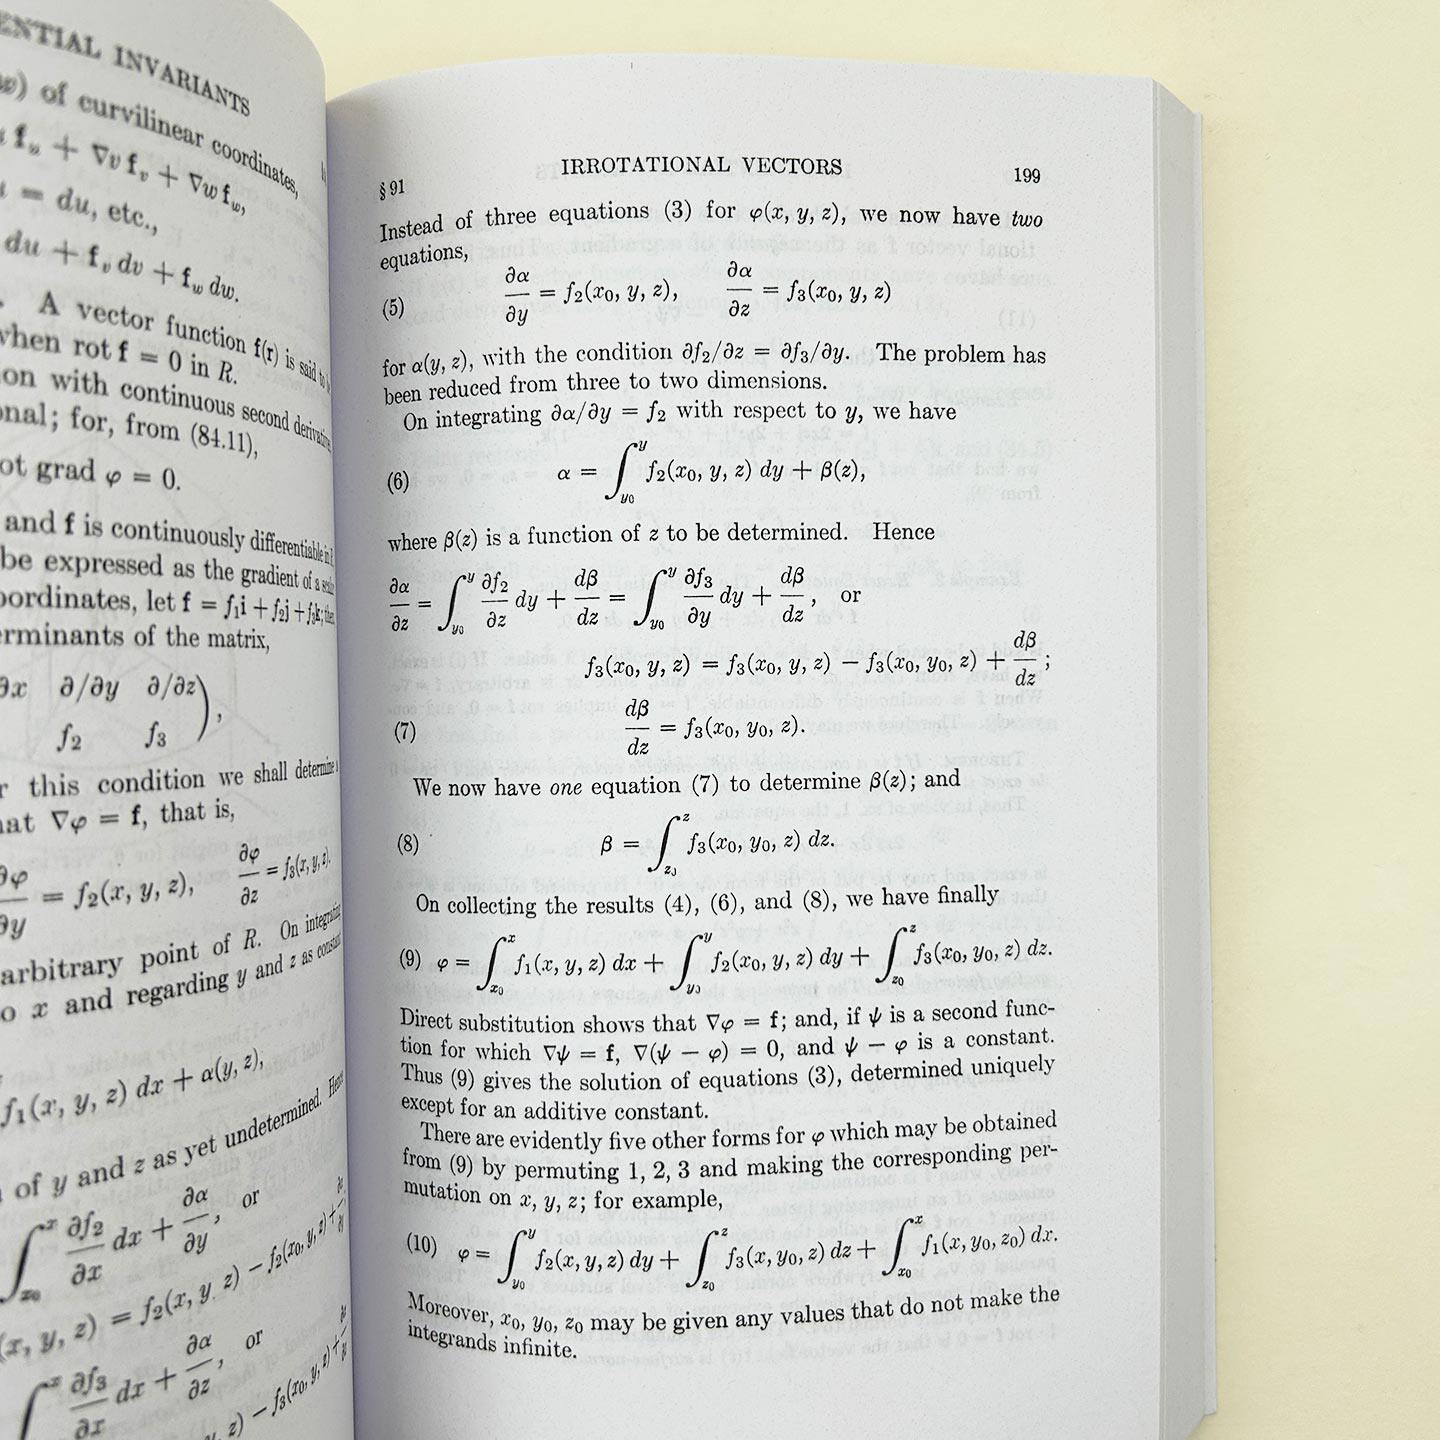 ENTIAL INVARIANTS
of curvilinear coordinates,
f_u + ∇v f_v + ∇w f_w,
= du, etc.,
du + f_v dv + f_w dw.
A vector function f(r) is said to
when rot f = 0 in R.
on with continuous second derivative
onal; for, from (84.11),
ot grad φ = 0.
and f is continuously differentiable in
be expressed as the gradient of a
oordinates, let f = f₁i + f₂j + f₃k;
erminants of the matrix,
∂x ∂/∂y ∂/∂z
f₂ f₃ ),
r this condition we shall determine
hat ∇φ = f, that is,
∂φ/∂y = f₂(x, y, z), ∂φ/∂z = f₃(x, y, z).
arbitrary point of R. On integrating
o x and regarding y and z as constant
f₁(x, y, z) dx + α(y, z),
of y and z as yet undetermined. Hence
∫_{x₀}^{x} ∂f₂/∂x dx + ∂α/∂y, or
(x, y, z) = f₂(x, y, z) − f₂(x₀, y, z) +
∫ ∂f₃/∂x dx + ∂α/∂z, or
z) − f₃(x₀, y, z) +
§ 91 IRROTATIONAL VECTORS 199
Instead of three equations (3) for φ(x, y, z), we now have two
equations,
(5) ∂α/∂y = f₂(x₀, y, z), ∂α/∂z = f₃(x₀, y, z)
for α(y, z), with the condition ∂f₂/∂z = ∂f₃/∂y. The problem has
been reduced from three to two dimensions.
On integrating ∂α/∂y = f₂ with respect to y, we have
(6) α = ∫_{y₀}^{y} f₂(x₀, y, z) dy + β(z),
where β(z) is a function of z to be determined. Hence
∂α/∂z = ∫_{y₀}^{y} ∂f₂/∂z dy + dβ/dz = ∫_{y₀}^{y} ∂f₃/∂y dy + dβ/dz, or
f₃(x₀, y, z) = f₃(x₀, y, z) − f₃(x₀, y₀, z) + dβ/dz;
(7) dβ/dz = f₃(x₀, y₀, z).
We now have one equation (7) to determine β(z); and
(8) β = ∫_{z₀}^{z} f₃(x₀, y₀, z) dz.
On collecting the results (4), (6), and (8), we have finally
(9) φ = ∫_{x₀}^{x} f₁(x, y, z) dx + ∫_{y₀}^{y} f₂(x₀, y, z) dy + ∫_{z₀}^{z} f₃(x₀, y₀, z) dz.
Direct substitution shows that ∇φ = f; and, if ψ is a second func-
tion for which ∇ψ = f, ∇(ψ − φ) = 0, and ψ − φ is a constant.
Thus (9) gives the solution of equations (3), determined uniquely
except for an additive constant.
There are evidently five other forms for φ which may be obtained
from (9) by permuting 1, 2, 3 and making the corresponding per-
mutation on x, y, z; for example,
(10) φ = ∫_{y₀}^{y} f₂(x, y, z) dy + ∫_{z₀}^{z} f₃(x, y₀, z) dz + ∫_{x₀}^{x} f₁(x, y₀, z₀) dx.
Moreover, x₀, y₀, z₀ may be given any values that do not make the
integrands infinite.